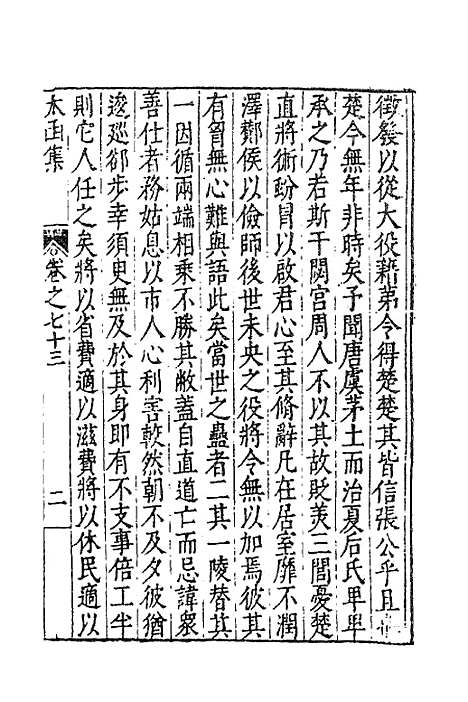 徵發以從大役藉弟令得楚楚其皆信張公乎且
楚今無年非時矣予聞唐虞茅土而治夏后氏卑卑
承之乃若斯干閟宮周人不以其故貶美三閭憂楚
直將術蚡冒以啟君心至其脩辭凡在居室靡不潤
澤酇侯以儉師後世未央之役將令無以加焉彼其
有胷無心難與語此矣當世之蠱者二其一陵替其
一因循兩端相乘不勝其敝蓋自直道亡而忌諱眾
善仕者務姑息以市人心利害較然朝不及夕彼猶
逡廵郤步幸須臾無及於其身即有不支事倍工半
則它人任之矣將以省費適以滋費將以休民適以
太函集
卷之七十三
二